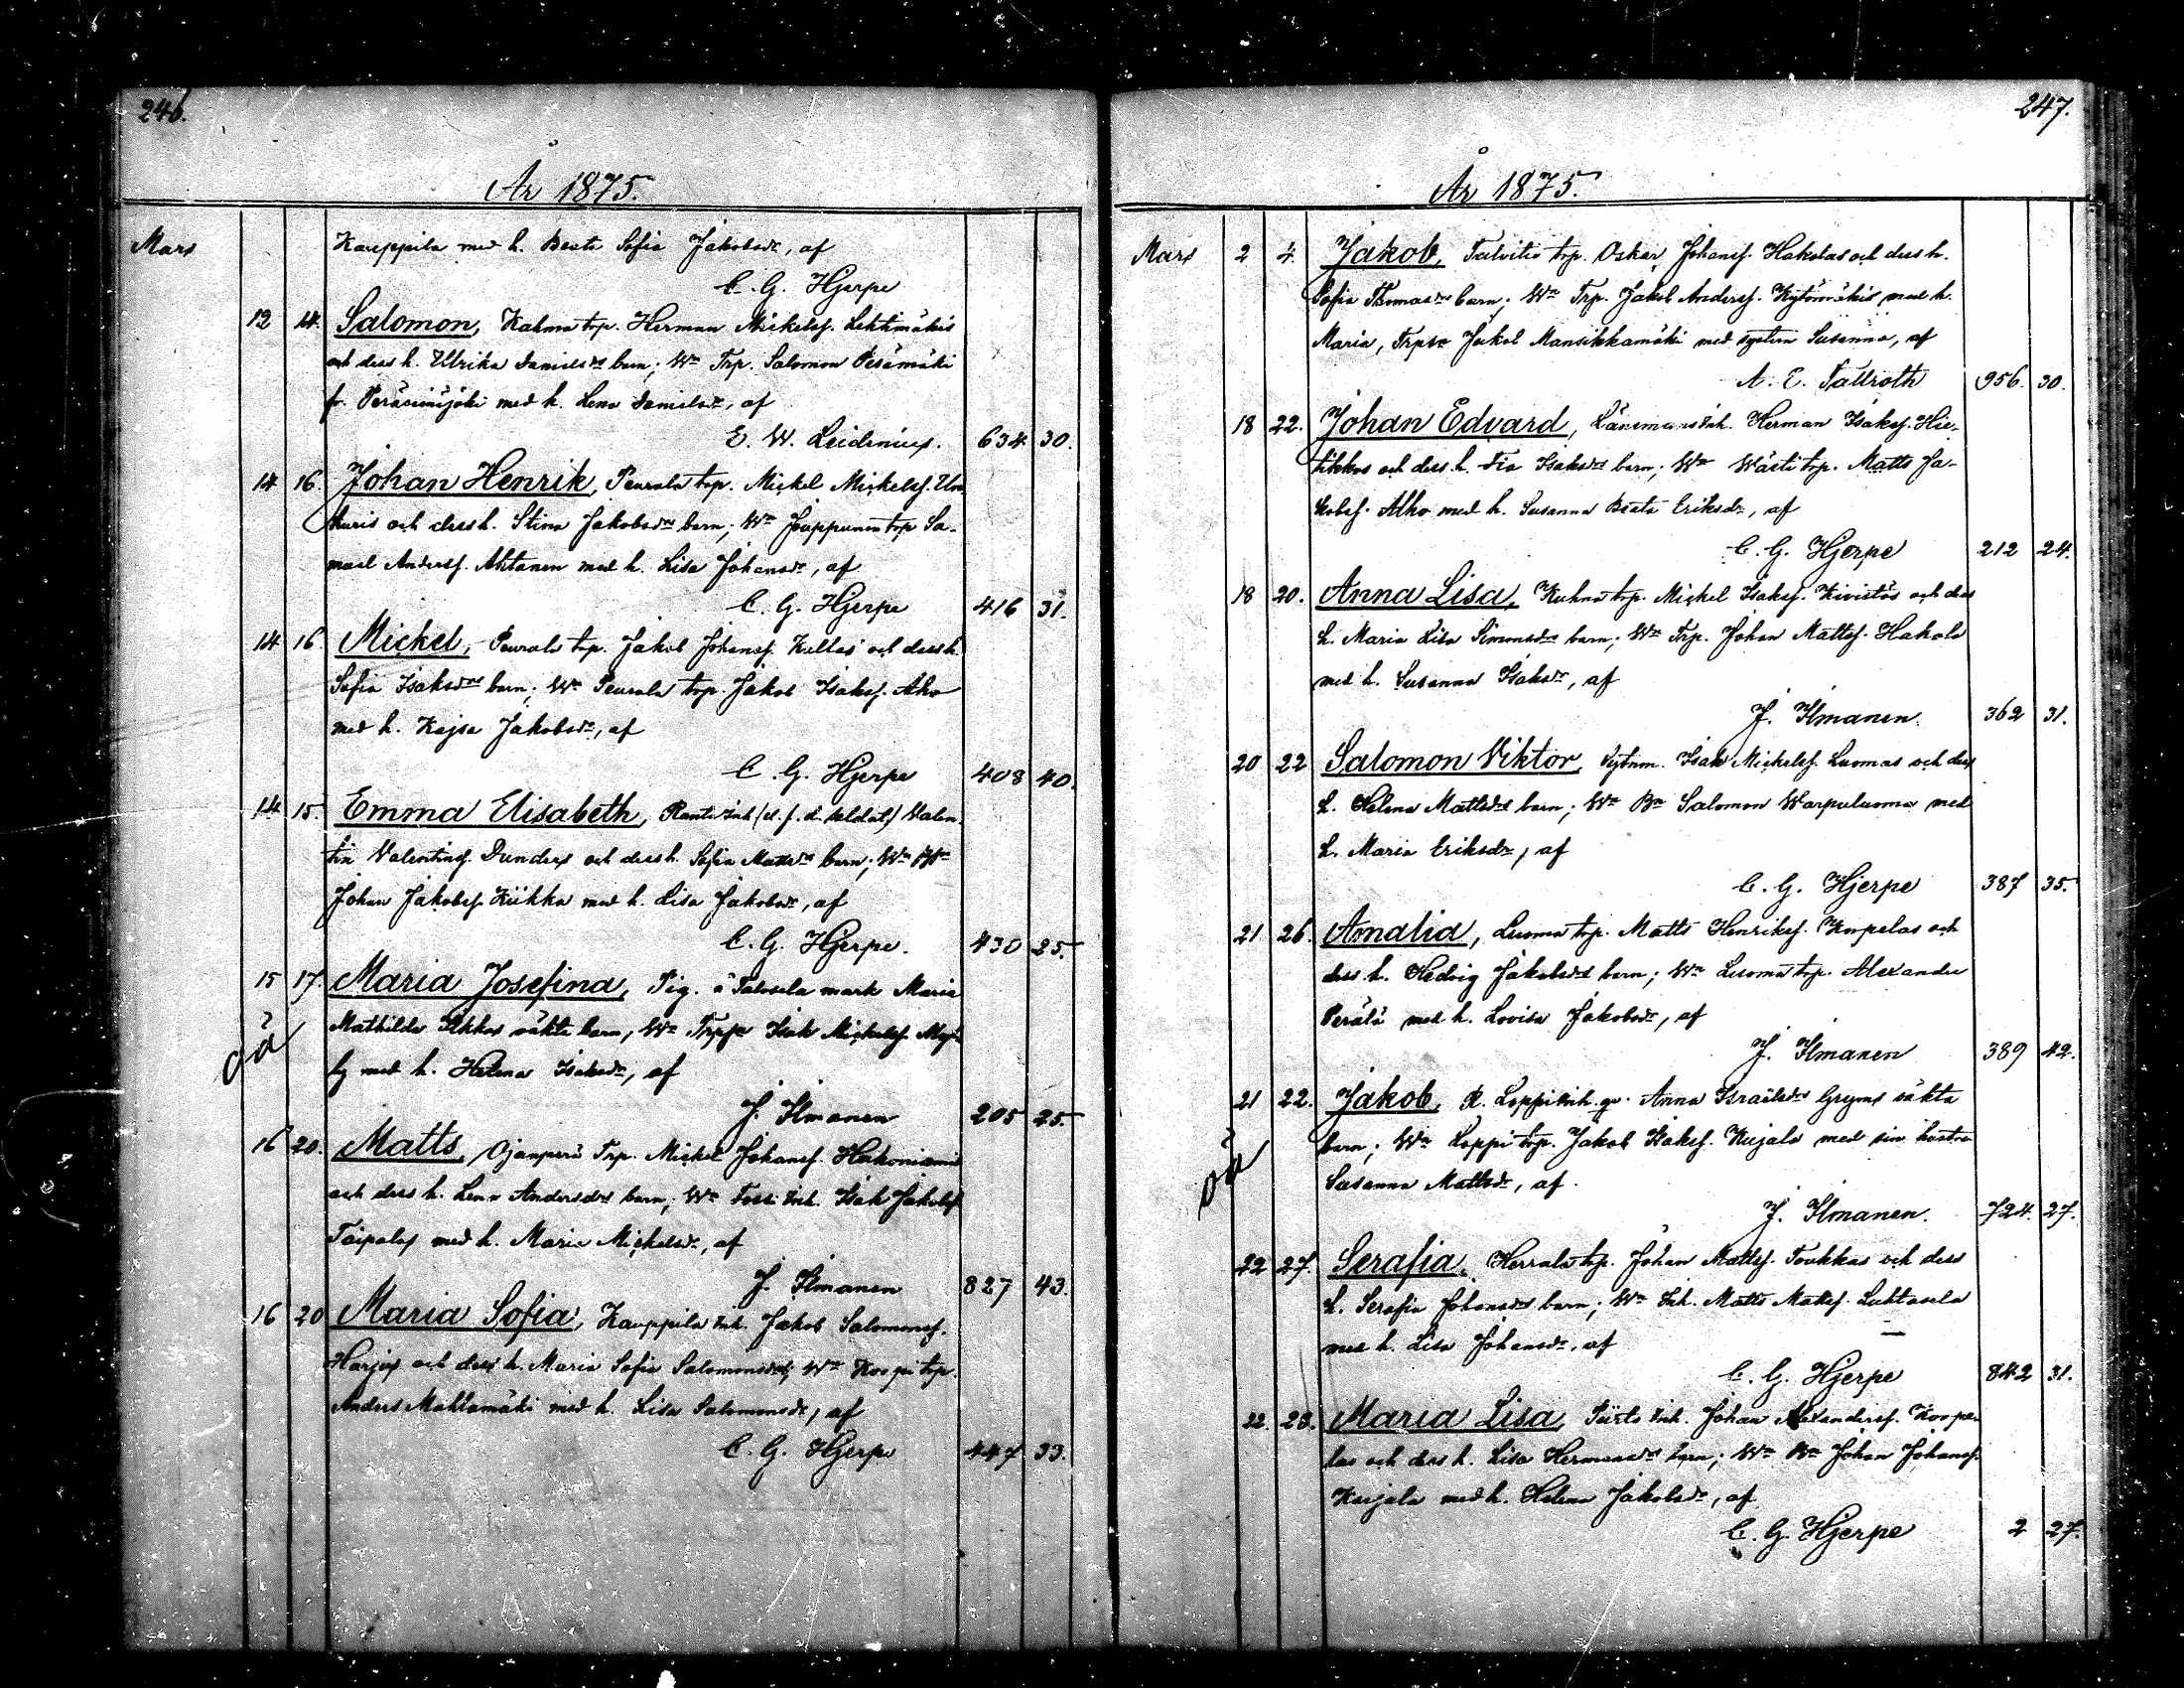 246.
År 1875.
Mars Kauppila med h. Beata Sofia Jakobsdr, af
C. G. Hjerpe
12 14. Salomon, Kahma trp. Herman Mickelss. Lehtimäkis
och dess h. Ulrika Danielsdrs barn; Wn Trp. Salomon Pesämäki
fr. Peräseinäjoki med h. Lena Danielsdr, af
E. W. Leidenius. 634 30.
14 16. Johan Henrik, Peurala trp. Mickel Mickelss.
och dess h. Stina Jakobsdrs barn; Wn Jouppinen trp Sa-
muel Anderss. Ahtanen med h. Lisa Johansdr, af
C. G. Hjerpe 416 31.
14 16. Mickel, Peurala trp. Jakob Johanss. Keltas och dess h.
Sofia Isaksdrs barn; Wn Peurala trp. Jakob Isakss. Aho
med h. Kajsa Jakobsdr, af
C. G. Hjerpe 408 40.
14 15. Emma Elisabeth, Ranta Inh (d. f. d. soldat) Valen-
tin Valentins. Dunders och dess h. Sofia Mattsdrs barn; Wn
Johan Jakobss. Kiikka med h. Lisa Jakobsdr, af
C. G. Hjerpe. 430 25.
15 17. Maria Josefina, Pig. å Talosela mark Maria
oä Mathilda oäkta barn, Wn Isak Mickelss.
med h. Helena Isaksdr, af
J. Ilmanen 205 25.
16 20. Matts, Ojanperä Trp. Mickel Johanss. Hakoniemis
och dess h. Lena Andersdrs barn; Wn Inh. Isak Jakobss
Taipalus med h. Maria Mickelsdr, af
J. Ilmanen 827 43.
16 20 Maria Sofia, Kauppila Inh. Jakob Salomonss.
Harjus och dess h. Maria Sofia Salomonsdrs; Wn Koopi trp.
Anders Mahlamäki med h. Lisa Salomonsdr, af
C. G. Hjerpe 447 33.
247.
År 1875.
Mars 2 4. Jakob, Talvitie trp. Oskar Johanss. Hakolas och dess h.
Sofia Thomasdrs barn; Wn Trp. Jakob Anderss. Kytömäkis med h.
Maria, Jakob Mansikkamäki med systern Susanna, af
A. E. Tallroth 956. 30.
18 22. Johan Edvard, Länsman Inh. Herman Isakss. Hie-
tikkos och dess h. Isaksdrs barn; Wn Wästi trp. Matts Ja-
kobss. Alho med h. Susanna Beata Eriksdr, af
C. G. Hjerpe 212 24.
18 20. Anna Lisa, Kuhna trp. Mickel Isakss. Kivistös och dess
h. Maria Lisa Simonsdrs barn; Wn Trp. Johan Mattss. Hakola
med h. Susanna Isaksdr, af
J. Ilmanen. 362 31.
20 22 Salomon Viktor, Isak Mickelss. Luomas och dess
h. Helena Mattsdrs barn; Wn Bn Salomon Warpuluoma med
h. Maria Eriksdr, af
C. G. Hjerpe 387 35.
21 26. Amalia, Luoma trp. Matts Henrikss. Knpelas och
dess h. Hedvig Jakobsdrs barn; Wn Luoma trp. Alexander
Perälä med h. Lovisa Jakobsdr, af
J. Ilmanen 389 42.
21 22. Jakob, K. Loppi Inh. qv. Anna Israelsdrs Gryms oäkta
oä barn; Wn Loppi trp. Jakob Isakss. Kujala med sin hustru
Susanna Mattsdr, af.
J. Ilmanen. 724. 27.
22 27. Serafia, Herrala trp. Johan Mattss. Toukkas och dess
h. Serafia Johansdrs barn; Wn Inh. Matts Mattss. Luhtasela
med h. Lisa Johansdr, af
C. G. Hjerpe 842 31.
22. 23. Maria Lisa, Inh. Johan Alexanderss. Koope-
las och dess h. Lisa Hermansdrs barn; Wn Bn Johan Johanss.
Karjala med h. Helena Jakobsdr, af
C. G. Hjerpe 2 27.